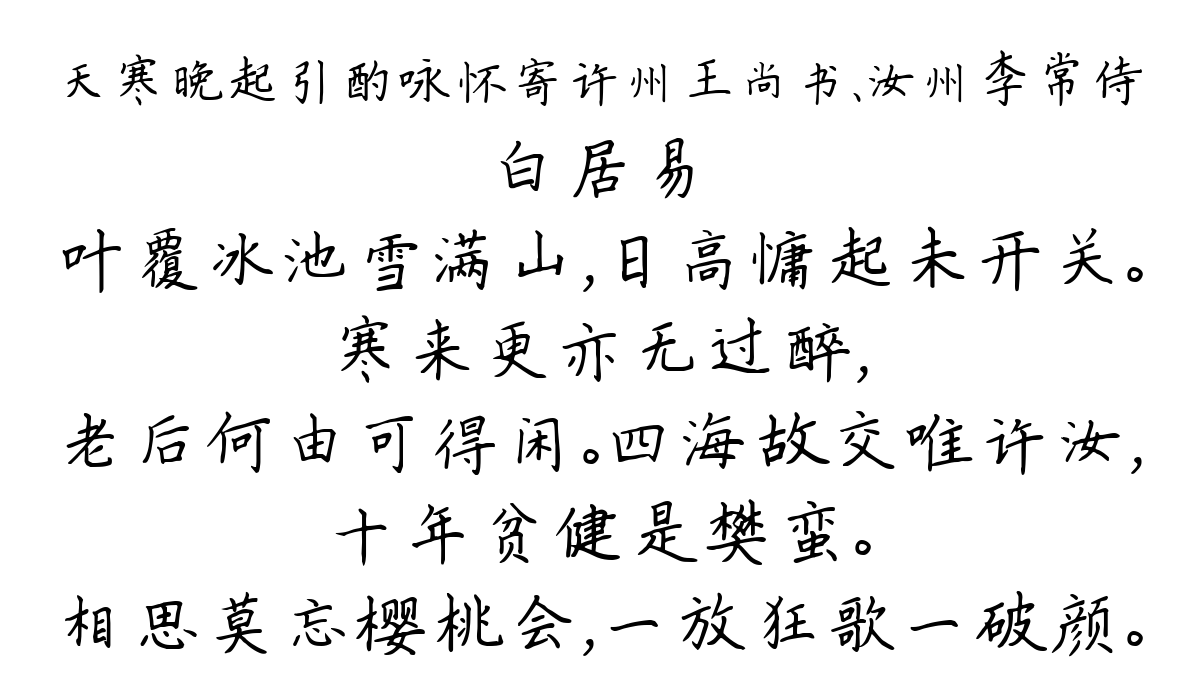 天寒晚起引酌咏怀寄许州王尚书、汝州李常侍
白居易
叶覆冰池雪满山,日高慵起未开关。
寒来更亦无过醉,
老后何由可得闲。四海故交唯许汝,
十年贫健是樊蛮。
相思莫忘樱桃会,一放狂歌一破颜。